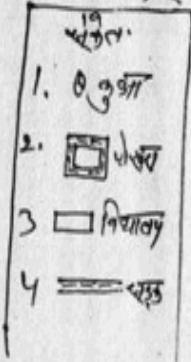 संकेत:
1. कुआ
2. पोखर
3 विद्यालय
4 सड़क